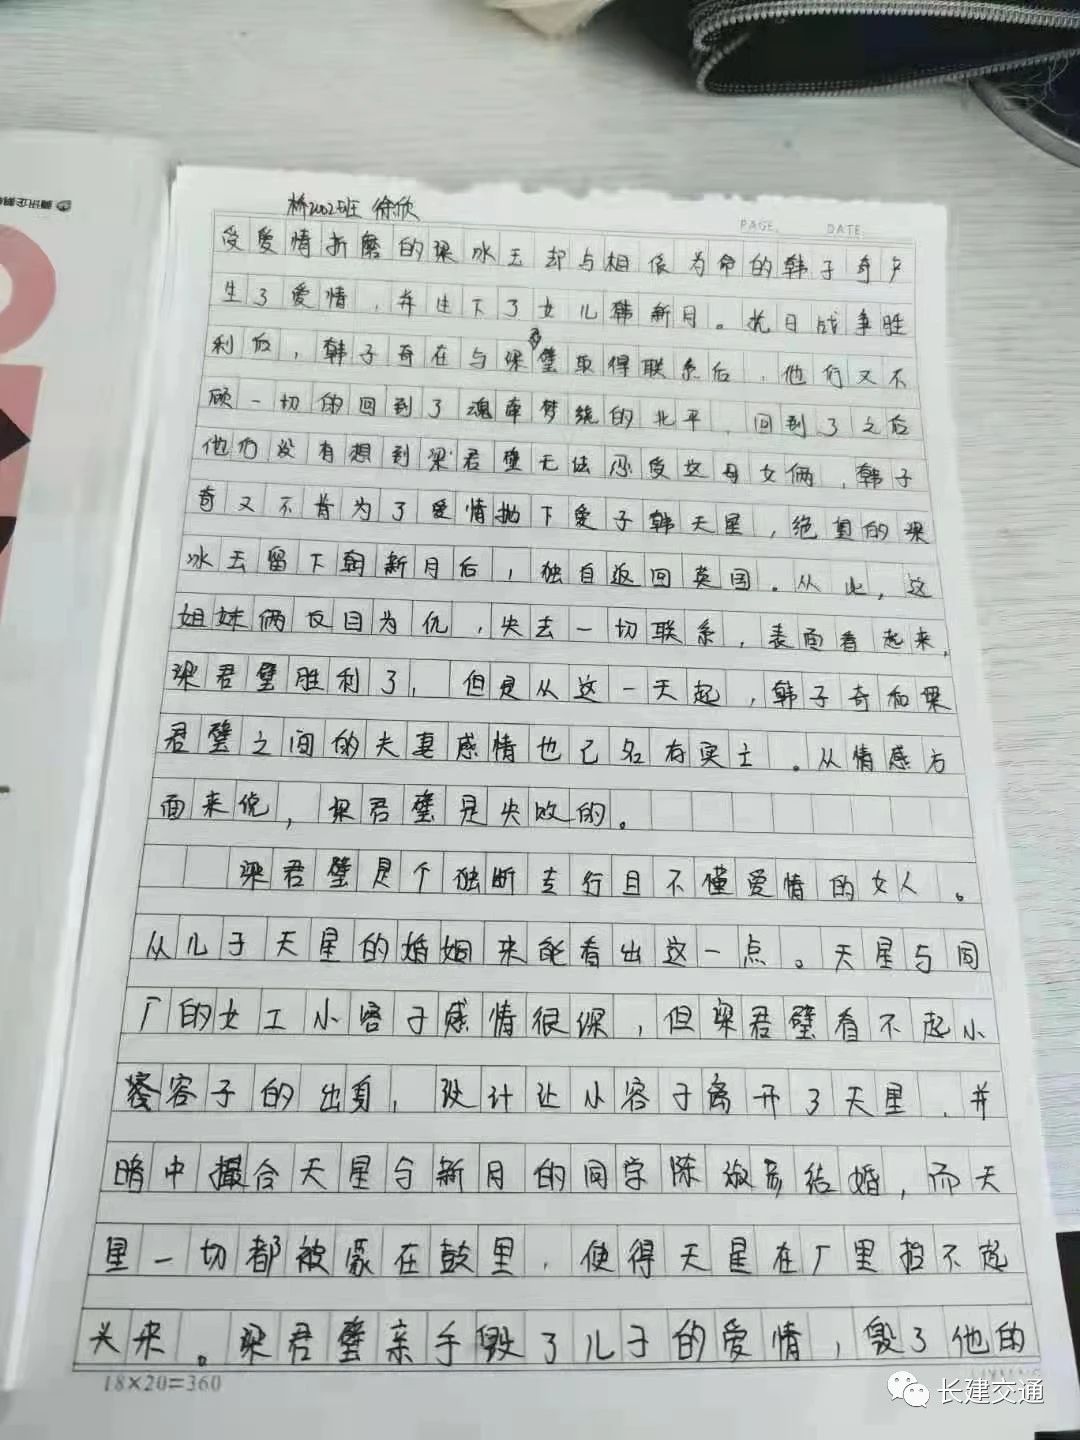 腾讯企鹅
桥2002班 徐欣
PAGE. DATE.
受爱情折磨的梁冰玉却与相依为命的韩子奇产
生了爱情，并生下了女儿韩新月。抗日战争胜
利后，韩子奇在与梁君璧取得联系后，他们又不
顾一切的回到了魂牵梦绕的北平，回到了之后
他们没有想到梁君璧无法忍受这母女俩，韩子
奇又不肯为了爱情抛下爱子韩天星，绝望的梁
冰玉留下韩新月后，独自返回英国。从此，这
姐妹俩反目为仇，失去一切联系，表面看起来，
梁君璧胜利了，但是从这一天起，韩子奇和梁
君璧之间的夫妻感情也已名存实亡。从情感方
面来说，梁君璧是失败的。
梁君璧是个独断专行且不懂爱情的女人。
从儿子天星的婚姻来能看出这一点。天星与同
厂的女工小容子感情很深，但梁君璧看不起小
容子的出身，设计让小容子离开了天星，并
暗中撮合天星与新月的同学陈淑彦结婚，而天
星一切都被蒙在鼓里，使得天星在厂里抬不起
头来。梁君璧亲手毁了儿子的爱情，毁了他的
18×20=360
长建交通